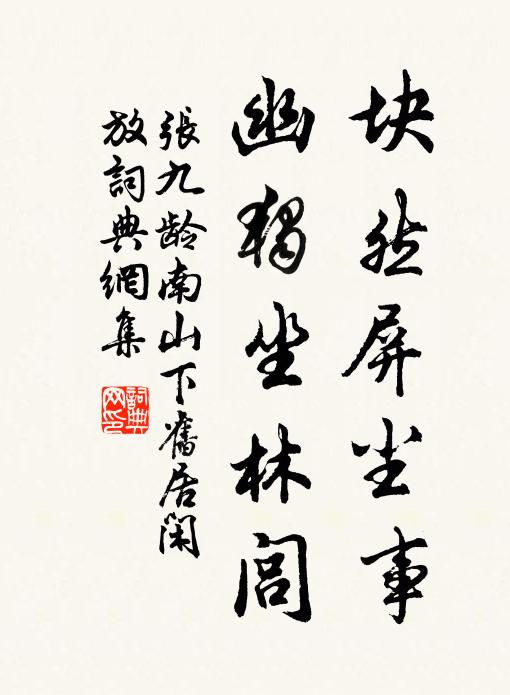 块然屏尘事
幽独坐林闾
張九龄南山下舊居閑
放詞典網集
詞典网印